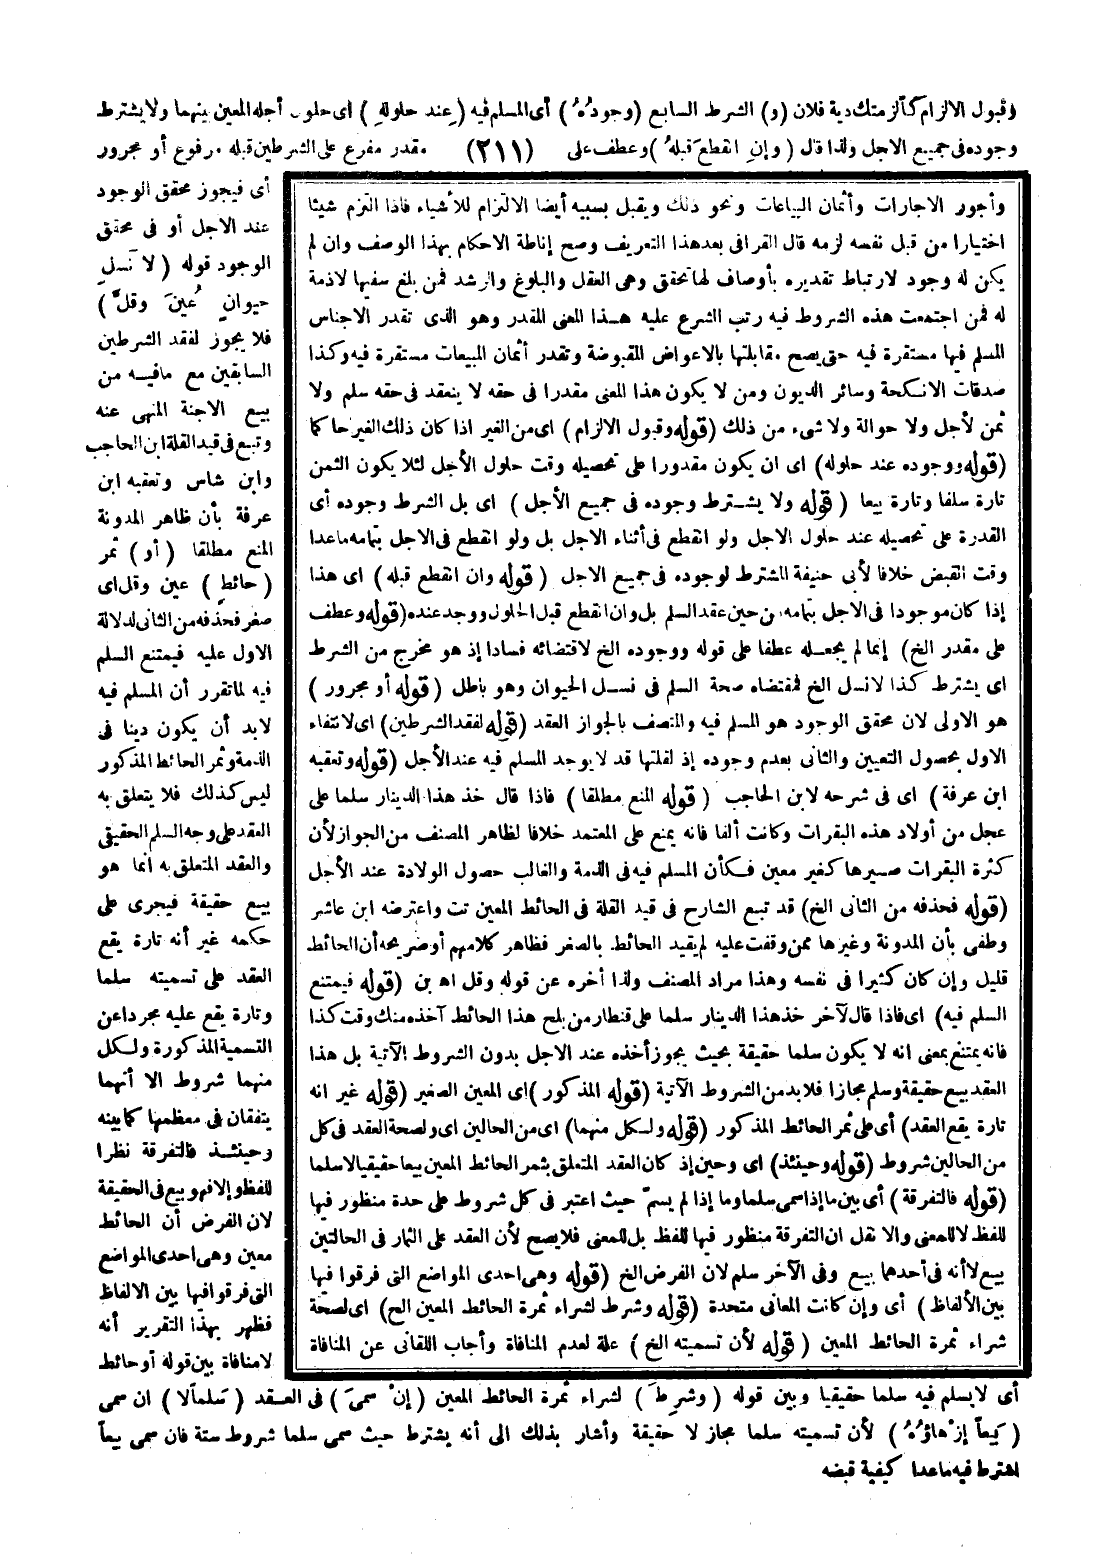 وقبول الالزام كألزمتك دية فلان (و) الشرط السابع (وجودُهُ) أى المسلم فيه (عِند حلولهِ) اى حلول أجله المعين بينهما ولا يشترط
وجوده فى جميع الاجل ولذا قال (وإنِ انقطع قبلهُ) وعطف على (٢١١) مقدر مفرع على الشرطين قبله مرفوع أو مجرور
أى فيجوز محقق الوجود
عند الاجل أو فى محقق
الوجود قوله (لا نَسلِ
حيوانٍ عُينَ وقلَّ)
فلا يجوز لفقد الشرطين
السابقين مع مافيه من
بيع الاجنة المنهى عنه
وتبع فى قيد القلة ابن الحاجب
وابن شاس وتعقبه ابن
عرفة بأن ظاهر المدونة
المنع مطلقا (أو) ثمر
(حائطٍ) عين وقل اى
صغر فحذفه من الثانى لدلالة
الاول عليه فيمتنع السلم
فيه لما تقرر أن المسلم فيه
لابد أن يكون دينا فى
الذمة وثمر الحائط المذكور
ليس كذلك فلا يتعلق به
العقد على وجه السلم الحقيقى
والعقد المتعلق به انما هو
بيع حقيقة فيجرى على
حكمه غير أنه تارة يقع
العقد على تسميته سلما
وتارة يقع عليه مجردا عن
التسمية المذكورة ولكل
منهما شروط الا أنهما
يتفقان فى معظمها كما بينه
وحينئذ فالتفرقة نظرا
للفظ والا فهو بيع فى الحقيقة
لان الفرض أن الحائط
معين وهى احدى المواضع
التى فرقوا فيها بين الالفاظ
فظهر بهذا التقرير أنه
لا منافاة بين قوله أو حائط
وأجور الاجارات وأثمان البياعات ونحو ذلك ويقبل بسببه أيضا الالتزام للأشياء فاذا التزم شيئا
اختيارا من قبل نفسه لزمه قال القرافى بعد هذا التعريف وصح إناطة الاحكام بهذا الوصف وان لم
يكن له وجود لارتباط تقديره بأوصاف لها تحقق وهى العقل والبلوغ والرشد فمن بلغ سفيها لاذمة
له فمن اجتمعت هذه الشروط فيه رتب الشرع عليه هذا المعنى المقدر وهو الذى تقدر الاجناس
المسلم فيها مستقرة فيه حتى يصح مقابلتها بالاعواض المقبوضة وتقدر أثمان المبيعات مستقرة فيه وكذا
صدقات الانكحة وسائر الديون ومن لا يكون هذا المعنى مقدرا فى حقه لا ينعقد فى حقه سلم ولا
ثمن لأجل ولا حوالة ولا شىء من ذلك (قوله وقبول الالزام) اى من الغير اذا كان ذلك الغير حاكما
(قوله ووجوده عند حلوله) اى ان يكون مقدورا على تحصيله وقت حلول الأجل لئلا يكون الثمن
تارة سلفا وتارة بيعا (قوله ولا يشترط وجوده فى جميع الأجل) اى بل الشرط وجوده أى
القدرة على تحصيله عند حلول الاجل ولو انقطع فى أثناء الاجل بل ولو انقطع فى الاجل بتمامه ماعدا
وقت القبض خلافا لأبى حنيفة المشترط لوجوده فى جميع الاجل (قوله وان انقطع قبله) اى هذا
إذا كان موجودا فى الاجل بتمامه من حين عقد السلم بل وان انقطع قبل الحلول ووجد عنده (قوله وعطف
على مقدر الخ) إنما لم يجعله عطفا على قوله ووجوده الخ لاقتضائه فسادا إذ هو مخرج من الشرط
اى يشترط كذا لانسل الخ فمقتضاه صحة السلم فى نسل الحيوان وهو باطل (قوله أو مجرور)
هو الاولى لان محقق الوجود هو المسلم فيه والمتصف بالجواز العقد (قوله لفقد الشرطين) اى لانتفاء
الاول بحصول التعيين والثانى بعدم وجوده إذ لقلتها قد لا يوجد المسلم فيه عند الأجل (قوله وتعقبه
ابن عرفة) اى فى شرحه لابن الحاجب (قوله المنع مطلقا) فاذا قال خذ هذا الدينار سلما على
عجل من أولاد هذه البقرات وكانت ألفا فانه يمنع على المعتمد خلافا لظاهر المصنف من الجواز لأن
كثرة البقرات صيرها كغير معين فكأن المسلم فيه فى الذمة والغالب حصول الولادة عند الأجل
(قوله فحذفه من الثانى الخ) قد تبع الشارح فى قيد القلة فى الحائط المعين تت واعترضه ابن عاشر
وطفى بأن المدونة وغيرها ممن وقفت عليه لم يقيد الحائط بالصغر فظاهر كلامهم أو صريحه أن الحائط
قليل وإن كان كثيرا فى نفسه وهذا مراد المصنف ولذا أخره عن قوله وقل اه بن (قوله فيمتنع
السلم فيه) اى فاذا قال لآخر خذ هذا الدينار سلما على قنطار من بلح هذا الحائط آخذه منك وقت كذا
فانه يمتنع بمعنى انه لا يكون سلما حقيقة بحيث يجوز أخذه عند الاجل بدون الشروط الآتية بل هذا
العقد بيع حقيقة وسلم مجازا فلابد من الشروط الآتية (قوله المذكور) اى المعين الصغير (قوله غير انه
تارة يقع العقد) أى على ثمر الحائط المذكور (قوله ولكل منهما) اى من الحالين اى ولصحة العقد فى كل
من الحالين شروط (قوله وحينئذ) اى وحين إذ كان العقد المتعلق بثمر الحائط المعين بيعا حقيقيا لاسلما
(قوله فالتفرقة) أى بين ما إذا سمى سلما وما إذا لم يسمّ حيث اعتبر فى كل شروط على حدة منظور فيها
للفظ لا للمعنى والا نقل ان التفرقة منظور فيها للفظ بل للمعنى فلا يصح لأن العقد على الثمار فى الحالتين
بيع لا أنه فى أحدهما بيع وفى الآخر سلم لان الفرض الخ (قوله وهى احدى المواضع التى فرقوا فيها
بين الألفاظ) أى وإن كانت المعانى متحدة (قوله وشرط لشراء ثمرة الحائط المعين الخ) اى لصحة
شراء ثمرة الحائط المعين (قوله لأن تسميته الخ) علة لعدم المنافاة وأجاب اللقانى عن المنافاة
أى لا يسلم فيه سلما حقيقيا وبين قوله (وشرِطَ) لشراء ثمرة الحائط المعين (إنْ سمىَ) فى العقد (سَلماً لا) ان سمى
(بَيعاً إزْهاؤُهُ) لأن تسميته سلما مجاز لا حقيقة وأشار بذلك الى أنه يشترط حيث سمى سلما شروط ستة فان سمى بيعاً
اشترط فيه ماعدا كيفية قبضه